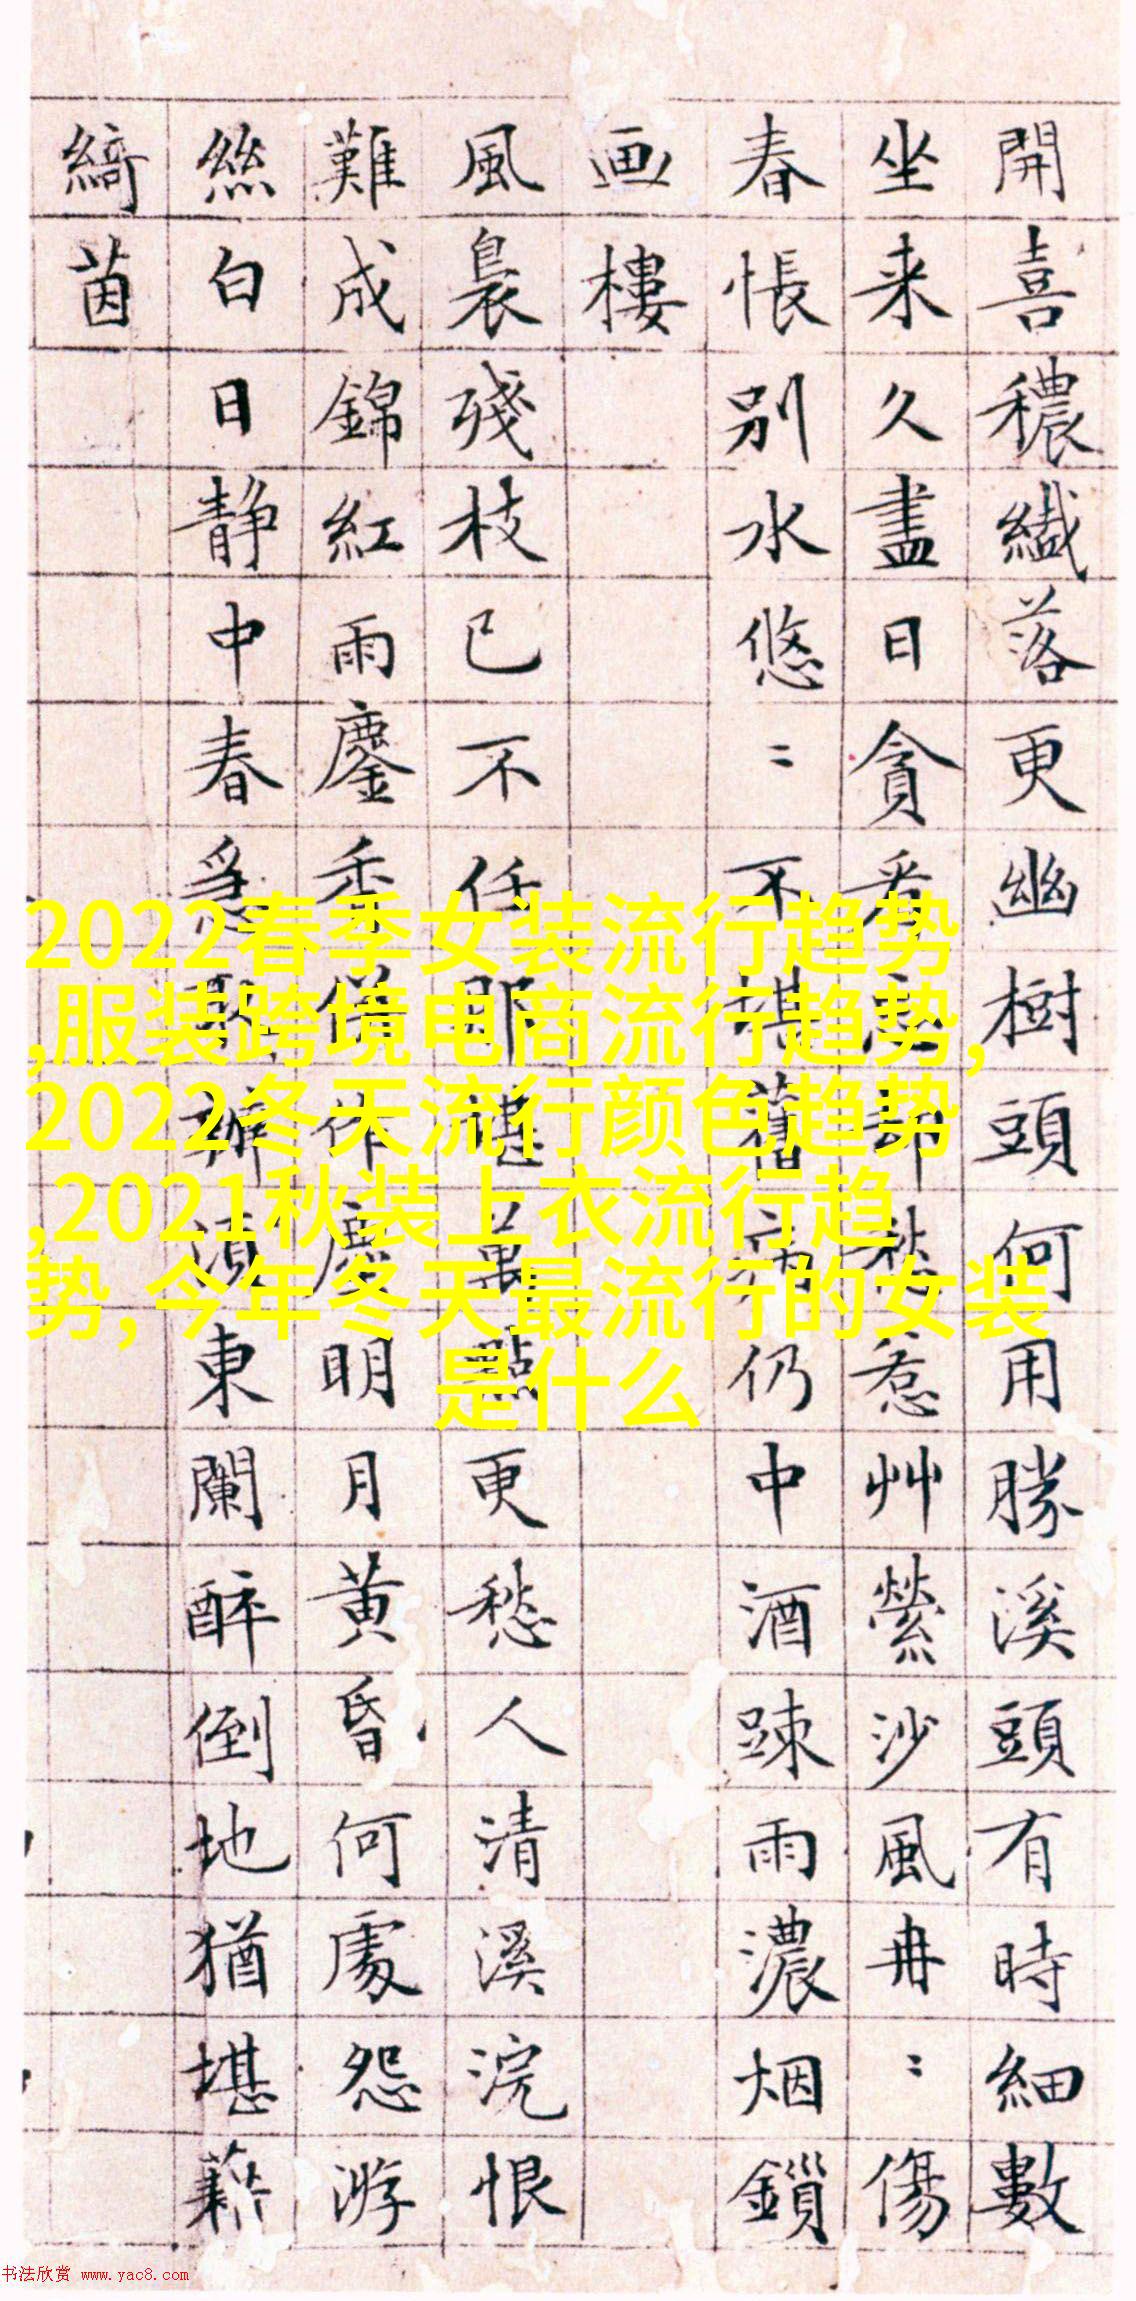 開喜穠纖落更幽樹頭何用勝溪頭有時細數
坐来久盡日貪看忘却愁惹艸縈沙風冉〻傷
春悵別水悠〻不堪舊病仍中酒踈雨濃烟鎖
画樓
風裊殘枝已不任那堪萬點更愁人清溪浣恨
難成錦紅雨鏖香併作塵明月黄昏何處怨游
絲白日静中春須東闌醉倒地猶堪藉
綺茵
2022春季女装流行趋势
,服装跨境电商流行趋势,
2022冬天流行颜色趋势
,2021秋装上衣流行趋
势,今年冬天最流行的女装
是什么
书法欣赏 www.yac8.com